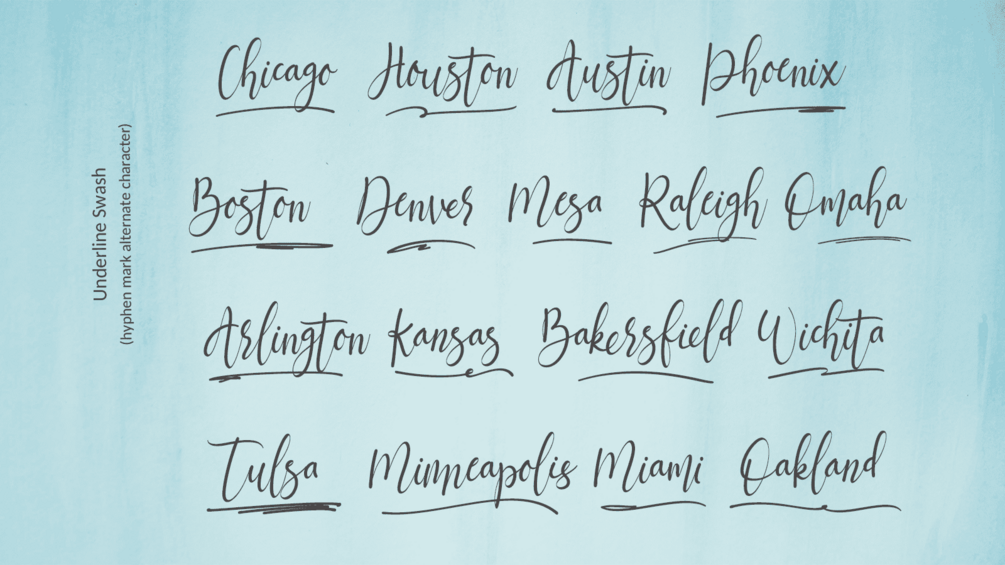 Underline Swash
(hyphen mark alternate character)
Chicago Houston Austin Phoenix
Boston Denver Mesa Raleigh Omaha
Arlington Kansas Bakersfield Wichita
Tulsa Minneapolis Miami Oakland